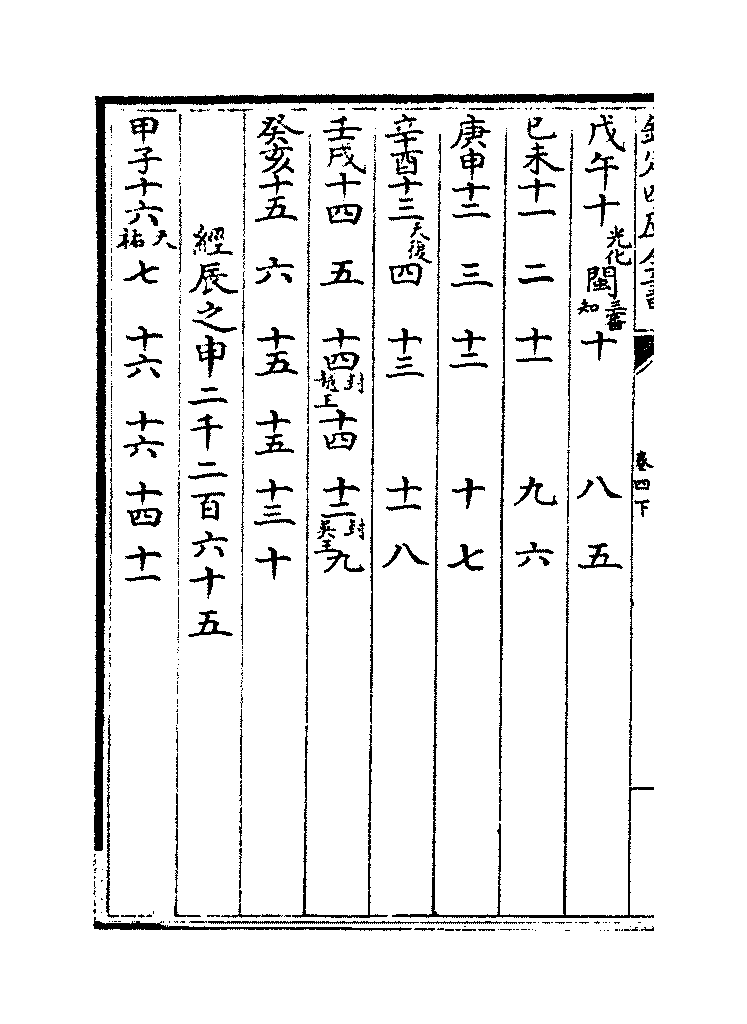 欽定四庫全書 卷四下
戊午十光化 閩王審知十 八 五
己未十一 二 十一 九 六
庚申十二 三 十二 十 七
辛酉十三天復四 十三 十一 八
壬戌十四 五 十四封越王十四 十二封吳王九
癸亥十五 六 十五 十五 十三 十
經辰之申二千二百六十五
甲子十六天祐七 十六 十六 十四 十一